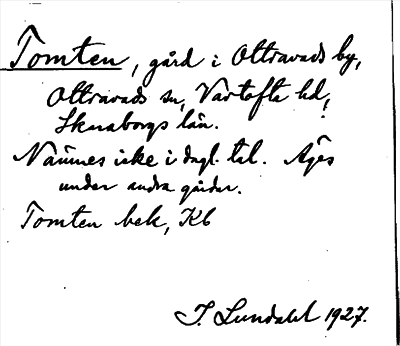 Tomten, gård i Ottravads by,
Ottravads sn, Vartofta hd,
Skaraborgs län.
Nämnes icke i dagl. tal. Äges
under andra gårdar.
Tomten bek, Kb
J. Lundahl 1927.